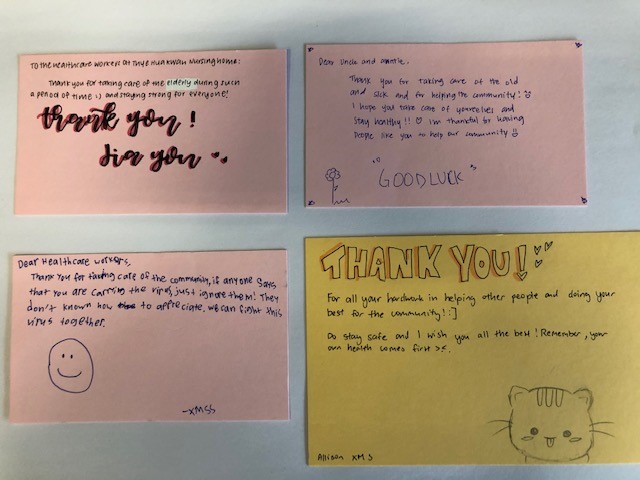 To the healthcare workers at Thye Hua Kwan Nursing home:
Thank you for taking care of the elderly during such
a period of time :) and staying strong for everyone!
thank you !
Jia you
Dear Uncle and auntie,
Thank you for taking care of the old
and sick and for helping the community!
I hope you take care of yourselves and
stay healthy!! I'm thankful for having
people like you to help our community
"GOODLUCK"
Dear Healthcare workers,
Thank you for taking care of the community, if anyone says
that you are carrying the virus, just ignore them! They
don't known how to appreciate. We can fight this
virus together.
-XMSS
THANK YOU!
For all your hardwork in helping other people and doing your
best for the community! :]
Do stay safe and I wish you all the best! Remember, your
own health comes first ><.
Allison XMS